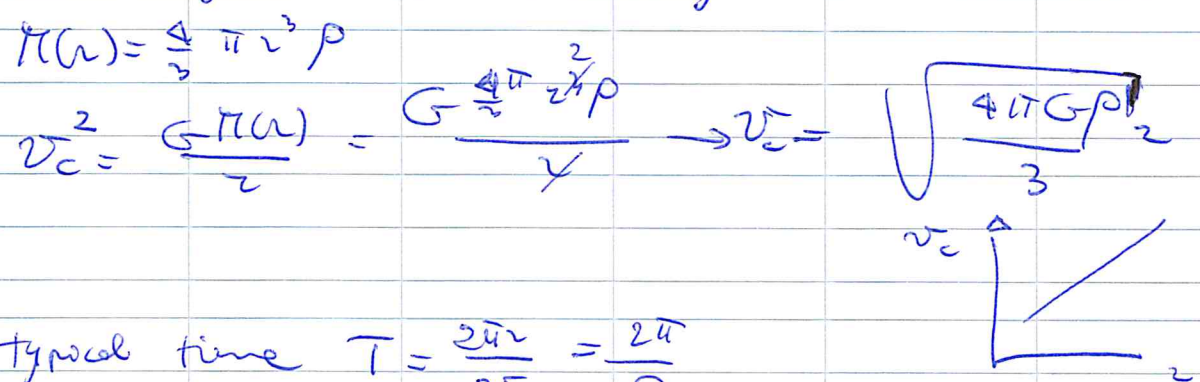 M(r) = 4/3 π r³ ρ
v_c² = G M(r) / r = G 4/3 π r³ ² ρ / r → v_c = √(4πGρ / 3) r
v_c
typical time T = 2πr / v = 2π /
r